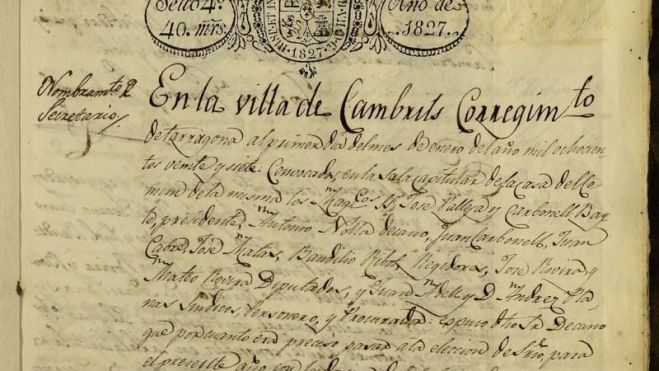 Sello 4º
40. mrs.
Año de
1827.
1827.
Nombramte. de
Secretario,
En la villa de Cambrils Corregimto
de tarragona al primer dia del mes de Enero del año mil ochocien
tos veinte y siete: Convocados en la sala capitular de la casa del Co
mun de la misma los Magcos. Sres. José Vallesa y Carbonell Bay
le, presidente, Antonio Nolla Decano, Juan Carbonell, Juan
Cabré, José Matas, Baudilio Ribot, Regidores, José Rovira, y
Mateo Rovira Diputados, y Juan y D. Andrez Pla
nas Sindicos, Personero, y Procurador: Espuso dho Sr. Decano
que por cuanto era preciso pasar a la eleccion de Srio, para
el presente año